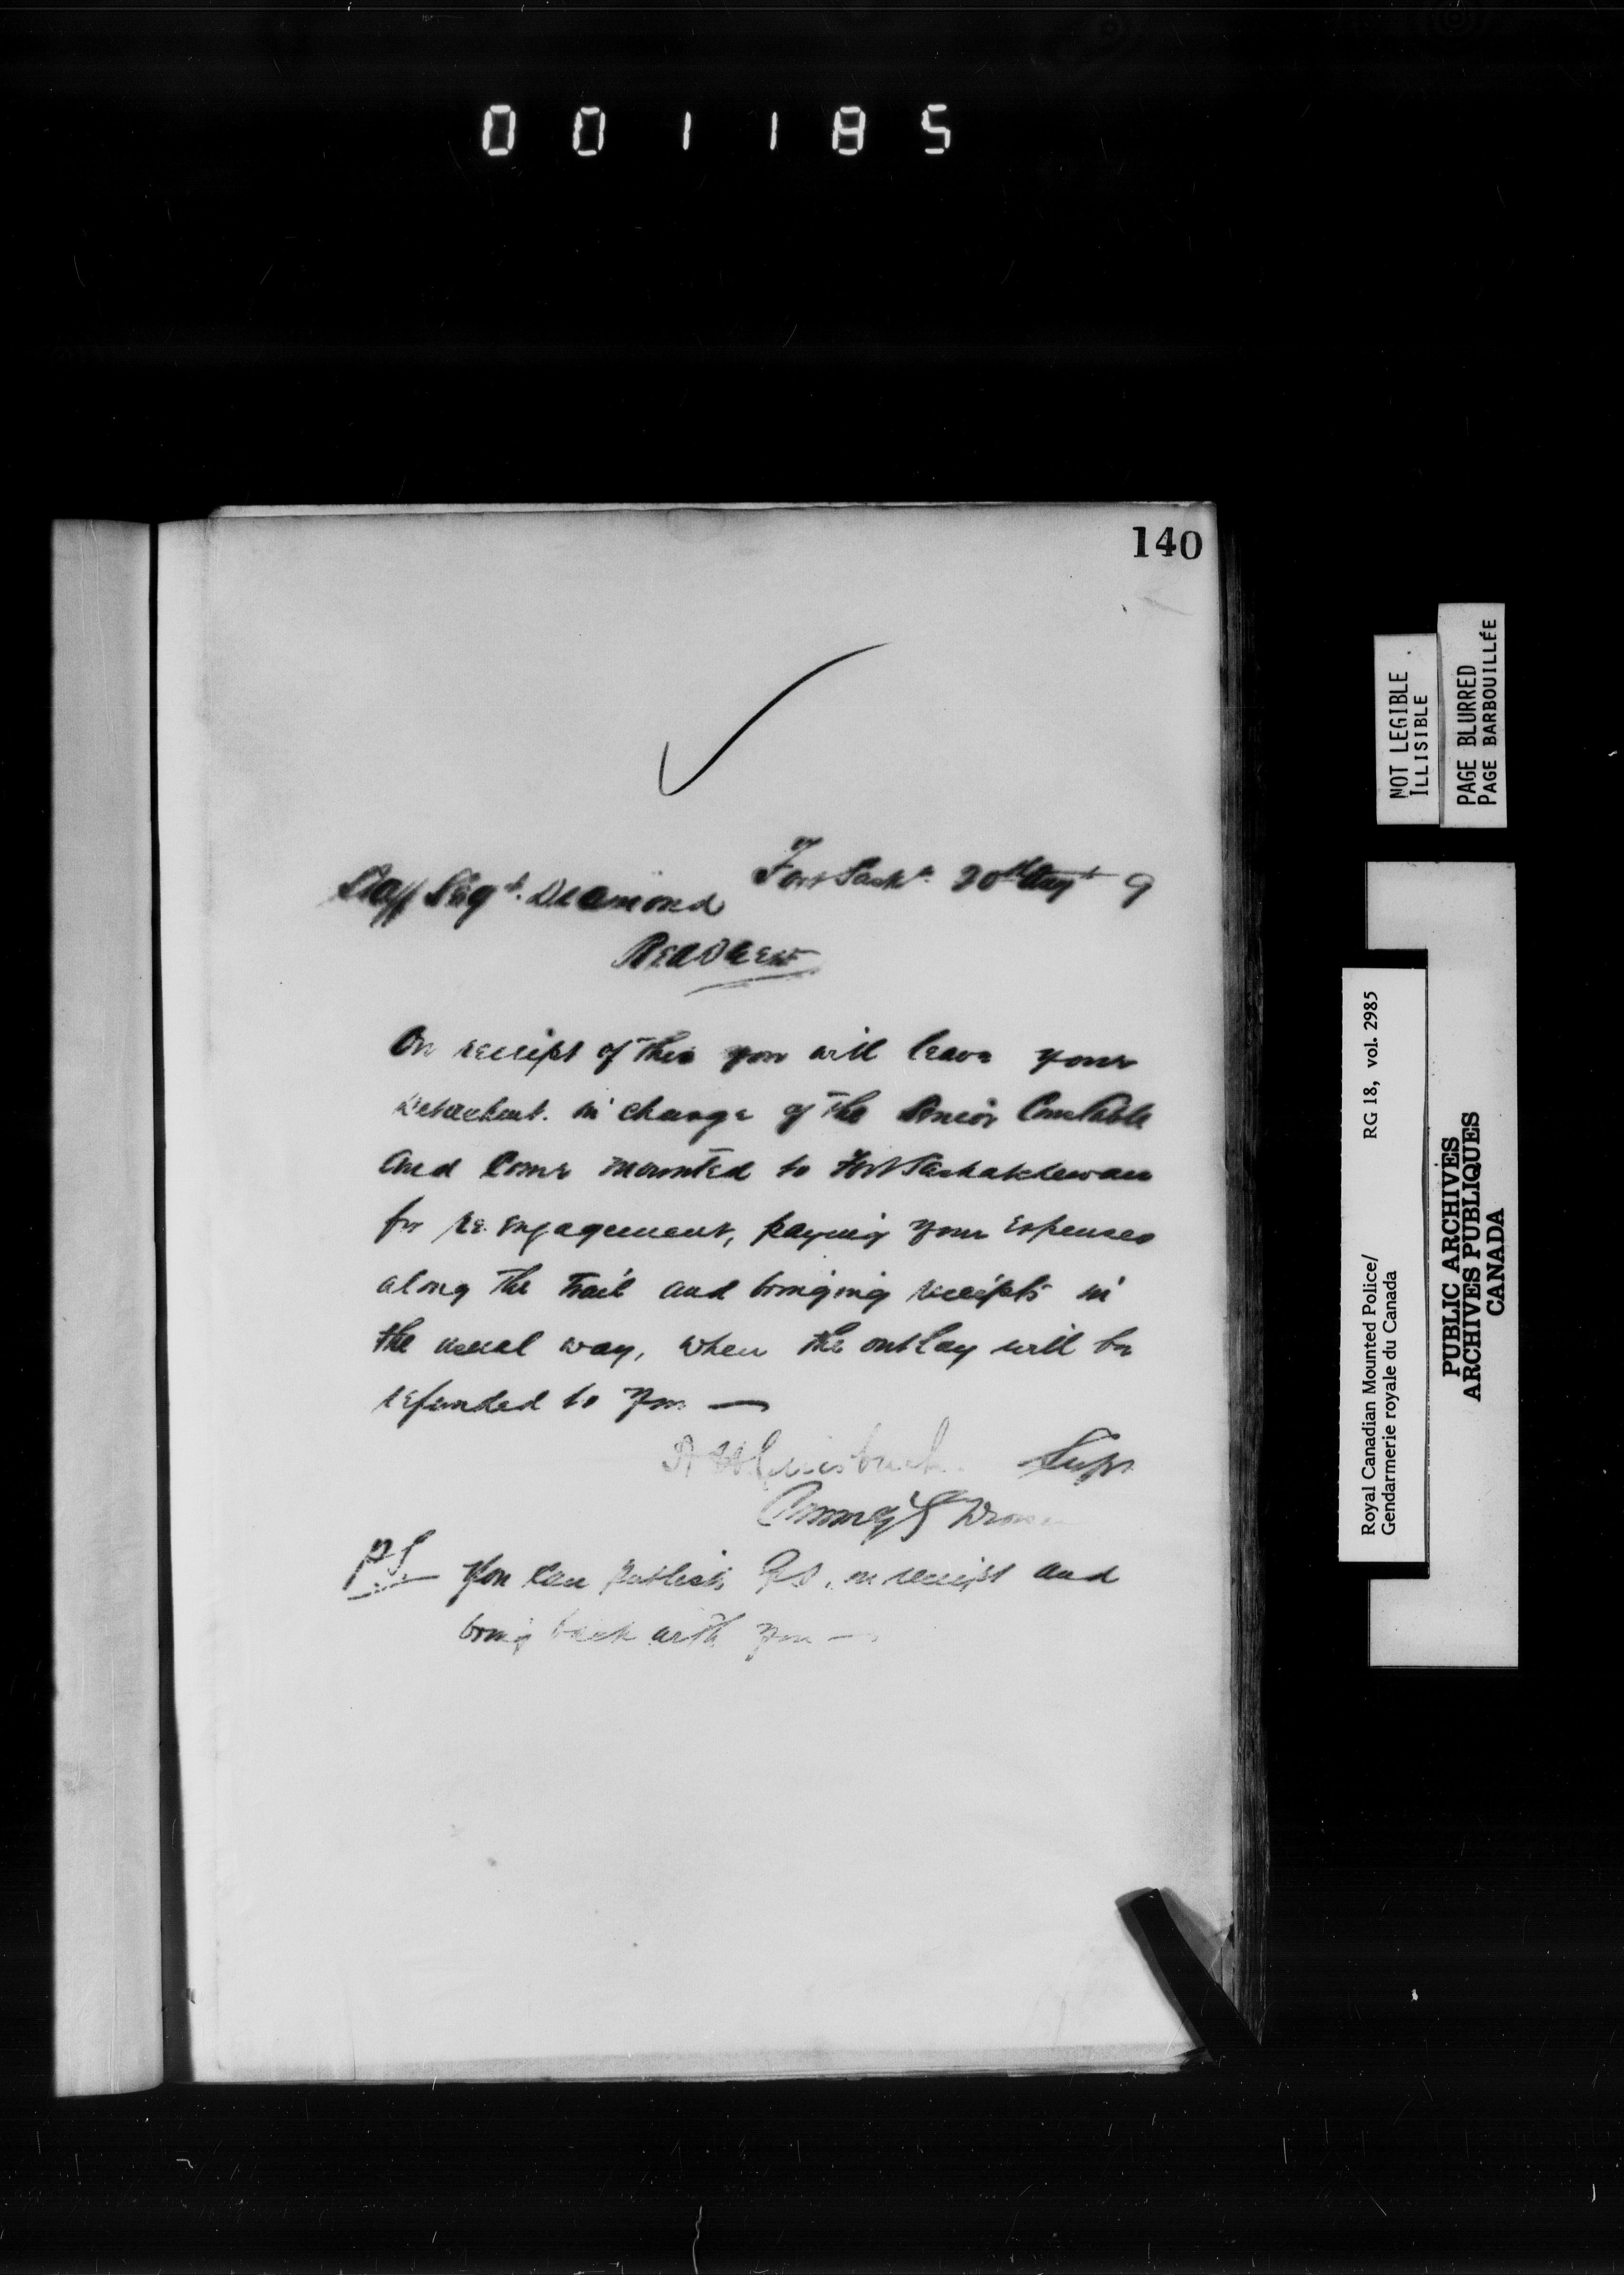 001185
140
Fort Sask^n. 20th Aug^t 9
Staff Serg^t. Diamond
Red Deer
On receipt of this you will leave your
Detachmt. in charge of the Senior Constable
and come mounted to Fort Saskatchewan
for re-engagement, paying your expenses
along the trail and bringing receipts in
the usual way, when the outlay will be
refunded to you —
A H Griesbach. Supt
Commg G Divn.
P.S. You can on receipt and
bring back with you —
NOT LEGIBLE
ILLISIBLE
PAGE BLURRED
PAGE BARBOUILLÉE
Royal Canadian Mounted Police/ RG 18, vol. 2985
Gendarmerie royale du Canada
PUBLIC ARCHIVES
ARCHIVES PUBLIQUES
CANADA